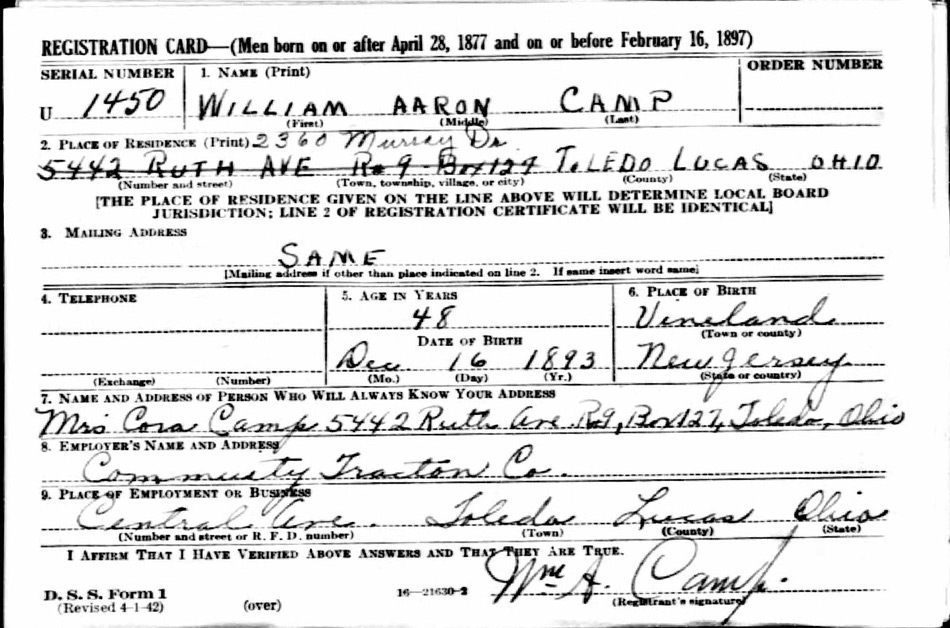 REGISTRATION CARD—(Men born on or after April 28, 1877 and on or before February 16, 1897)
SERIAL NUMBER 1. NAME (Print) ORDER NUMBER
U 1450 WILLIAM AARON CAMP
(First) (Middle) (Last)
2. PLACE OF RESIDENCE (Print) 2360 Murray Dr.
5442 RUTH AVE Ro 9 Box 127 TOLEDO LUCAS OHIO
(Number and street) (Town, township, village, or city) (County) (State)
[THE PLACE OF RESIDENCE GIVEN ON THE LINE ABOVE WILL DETERMINE LOCAL BOARD
JURISDICTION; LINE 2 OF REGISTRATION CERTIFICATE WILL BE IDENTICAL]
3. MAILING ADDRESS
SAME
[Mailing address if other than place indicated on line 2. If same insert word same]
4. TELEPHONE 5. AGE IN YEARS 6. PLACE OF BIRTH
48 Vineland
(Town or county)
DATE OF BIRTH
Dec 16 1893 New Jersey
(Exchange) (Number) (Mo.) (Day) (Yr.) (State or country)
7. NAME AND ADDRESS OF PERSON WHO WILL ALWAYS KNOW YOUR ADDRESS
Mrs Cora Camp 5442 Ruth Ave. R.9, Box 127, Toledo, Ohio
8. EMPLOYER'S NAME AND ADDRESS
Commuity Traction Co.
9. PLACE OF EMPLOYMENT OR BUSINESS
Central Ave. Toledo Lucas Ohio
(Number and street or R. F. D. number) (Town) (County) (State)
I AFFIRM THAT I HAVE VERIFIED ABOVE ANSWERS AND THAT THEY ARE TRUE.
Wm A. Camp.
D. S. S. Form 1 16—21630-2 (Registrant's signature)
(Revised 4-1-42) (over)